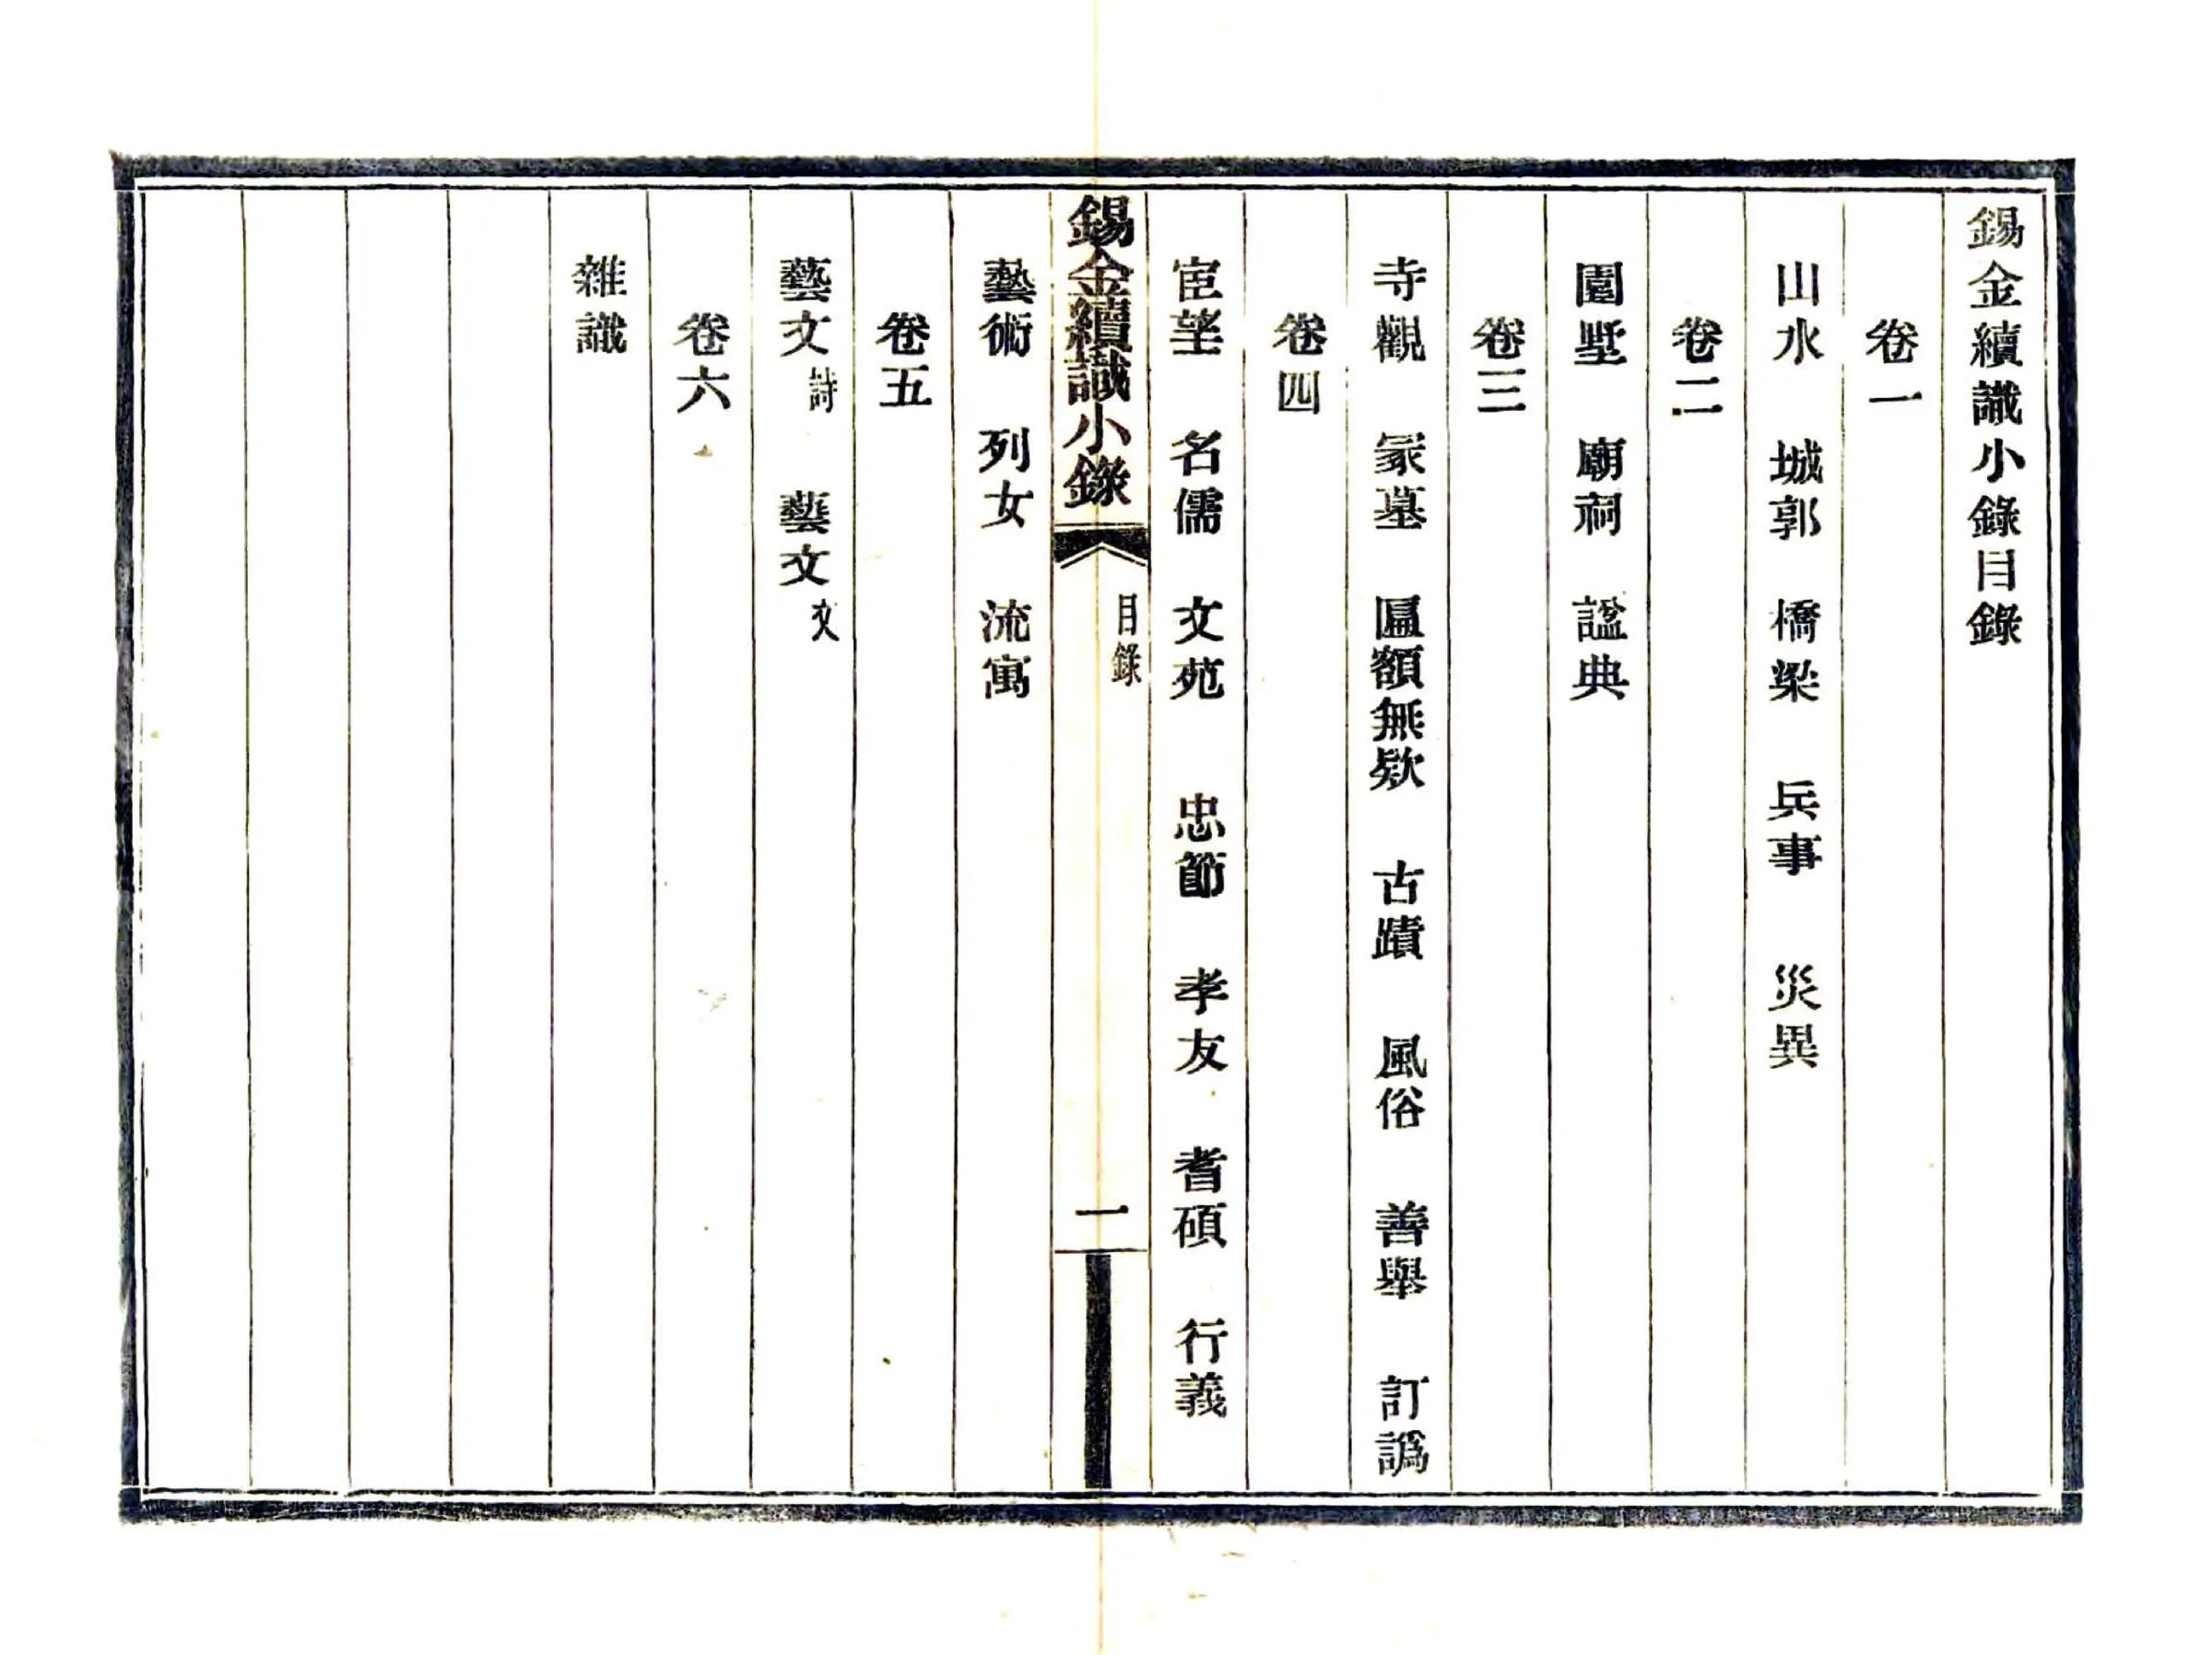 錫金續識小錄目錄
卷一
山水 城郭 橋梁 兵事 災異
卷二
園墅 廟祠 諡典
卷三
寺觀 冡墓 匾額無欵 古蹟 風俗 善舉 訂譌
卷四
宦望 名儒 文苑 忠節 孝友 耆碩 行義
錫金續識小錄 目錄 一
藝術 列女 流寓
卷五
藝文詩 藝文文
卷六
雜識